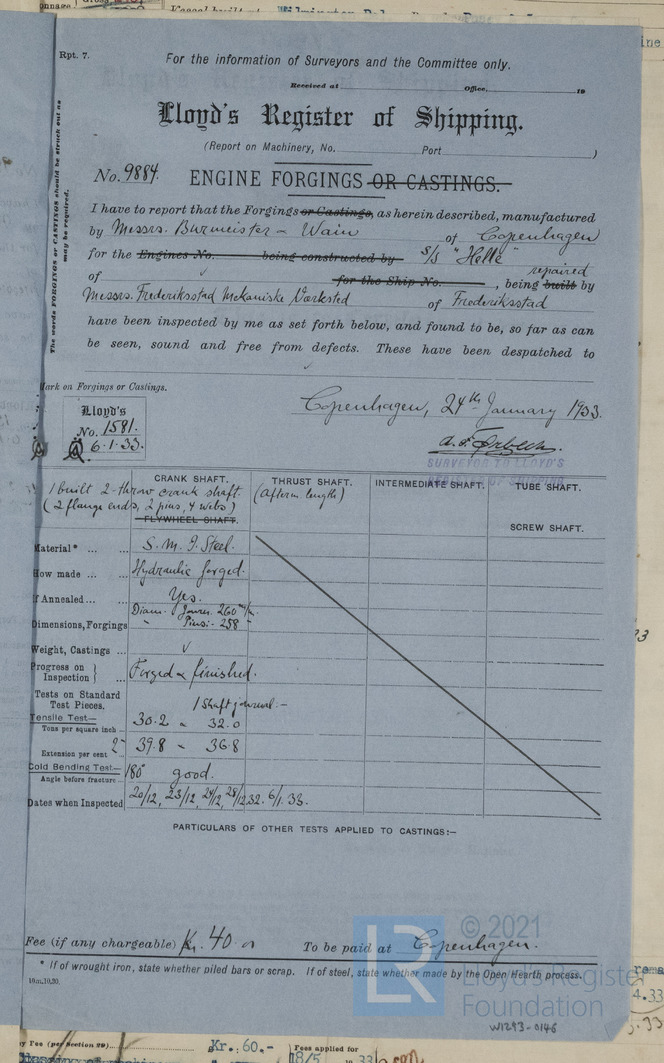 Rpt. 7.
For the information of Surveyors and the Committee only.
Received at Office, 19
Lloyd's Register of Shipping.
(Report on Machinery, No. Port )
No. 9884. ENGINE FORGINGS OR CASTINGS.
The words FORGINGS or CASTINGS should be struck out as may be required.
I have to report that the Forgings or Castings, as herein described, manufactured
by Messrs. Burmeister & Wain of Copenhagen
for the Engines No. being constructed by S/S "Helle"
repaired
of for the Ship No. , being built by
Messrs. Frederiksstad Mekaniske Værksted of Frederiksstad
have been inspected by me as set forth below, and found to be, so far as can
be seen, sound and free from defects. These have been despatched to
Mark on Forgings or Castings.
Copenhagen, 24th January 1933.
Lloyd's
No. 1581.
6.1.33.
SURVEYOR TO LLOYD'S
CRANK SHAFT. THRUST SHAFT. INTERMEDIATE SHAFT. TUBE SHAFT.
1 built 2-throw crank shaft. (afterm. length)
(2 flange ends, 2 pins, 4 webs)
FLYWHEEL SHAFT. SCREW SHAFT.
Material* ... ... S. M. I. Steel.
How made ... ... Hydraulic forged.
If Annealed ... ... Yes.
Diam. Journ. 260 m/m.
Dimensions, Forgings " Pins:- 258 "
Weight, Castings ...
Progress on Inspection } ... Forged & finished.
Tests on Standard
Test Pieces. 1 Shaft journal:-
Tensile Test—
Tons per square inch ... 30.2 - 32.0
Extension per cent 2" 39.8 - 36.8
Cold Bending Test—
Angle before fracture... 180° good.
Dates when Inspected 20/12, 23/12, 24/12, 28/12 32. 6/1. 33.
PARTICULARS OF OTHER TESTS APPLIED TO CASTINGS:—
Fee (if any chargeable) Kr. 40.- To be paid at Copenhagen.
* If of wrought iron, state whether piled bars or scrap. If of steel, state whether made by the Open Hearth process.
10m,10,30.
LR
© 2021
Lloyd's Register
Foundation
W1293-0146
Kr.: 60.- Fees applied for
18/5 33